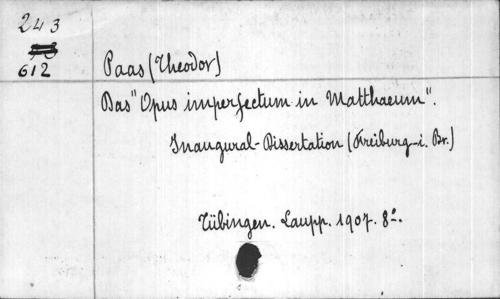 243
612
Paas (Theodor)
Das "Opus imperfectum in Matthaeum".
Inaugural-Dissertation (Freiburg-i. Br.)
Tübingen. Laupp. 1907. 8°.